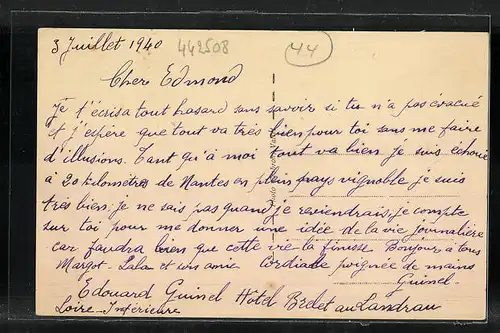 3 Juillet 1940 442508 44
Chere Edmond
Je t'écris a tout hasard sans savoir si tu n'a pas évacué
et j'espère que tout va très bien pour toi sans me faire
d'illusions. Tant qu'à moi tout va bien je suis échoué
à 20 kilomètres de Nantes en plein pays vignoble je suis
très bien, je ne sais pas quand je reviendrais, je compte
sur toi pour me donner une idée de la vie journalière
car faudra bien que cette vie la finesse. Bonjour à tous
Margot - et son amie Cordiale poignée de mains
Guinel
Edouard Guinel Hôtel Bretet au Landrau
Loire-Inférieure